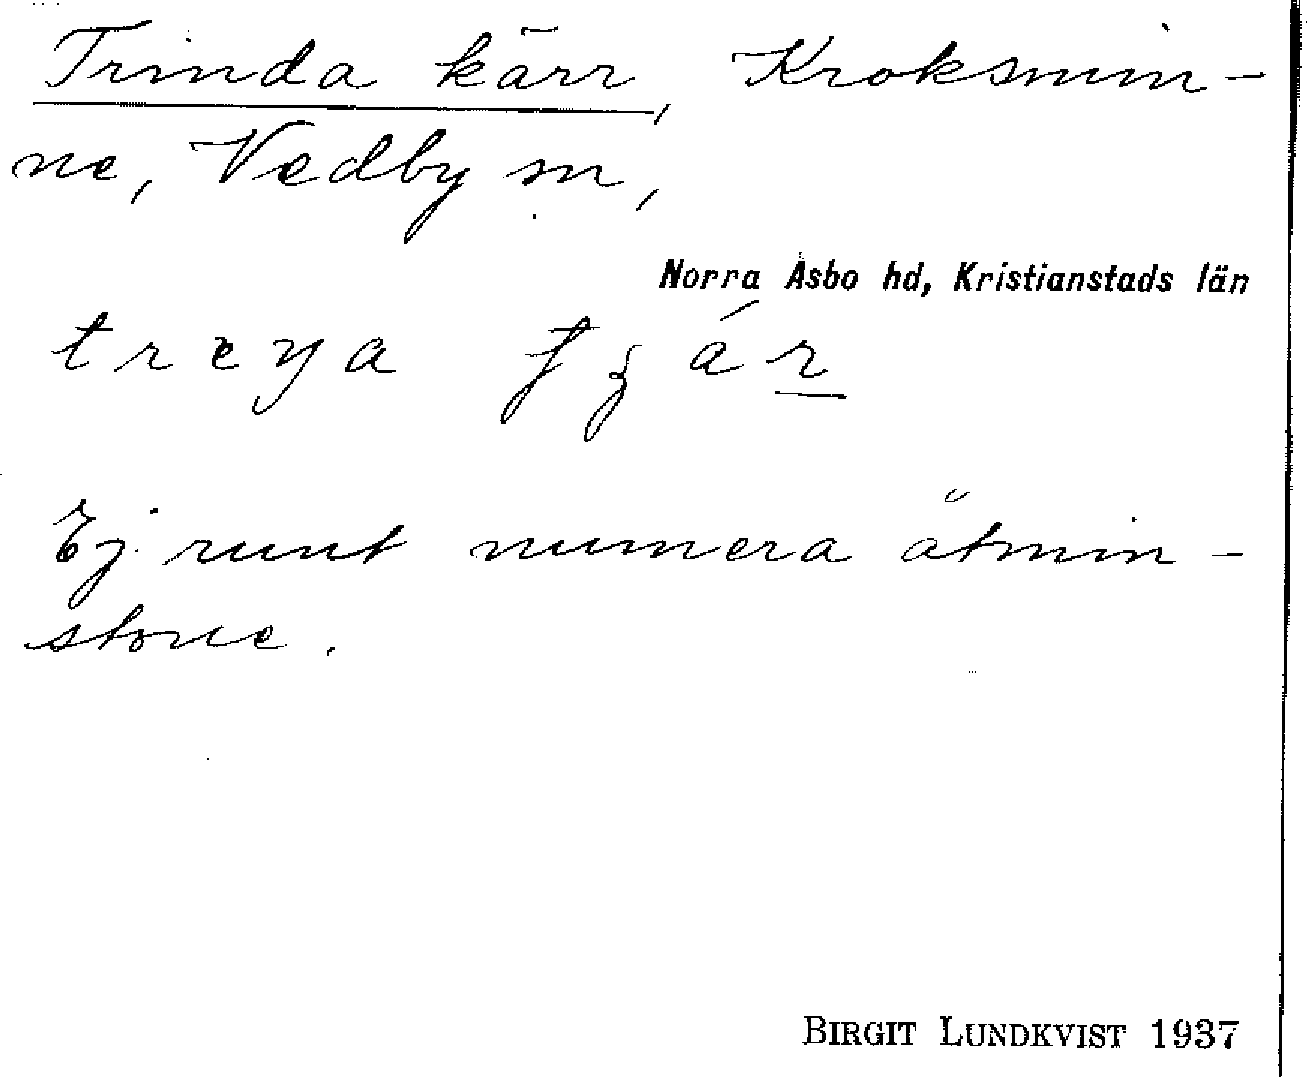 Trinda kärr, Kroksmin-
ne, Vedby sn,
Norra Åsbo hd, Kristianstads län
treya
Ej runt numera åtmin-
stone.
BIRGIT LUNDKVIST 1937